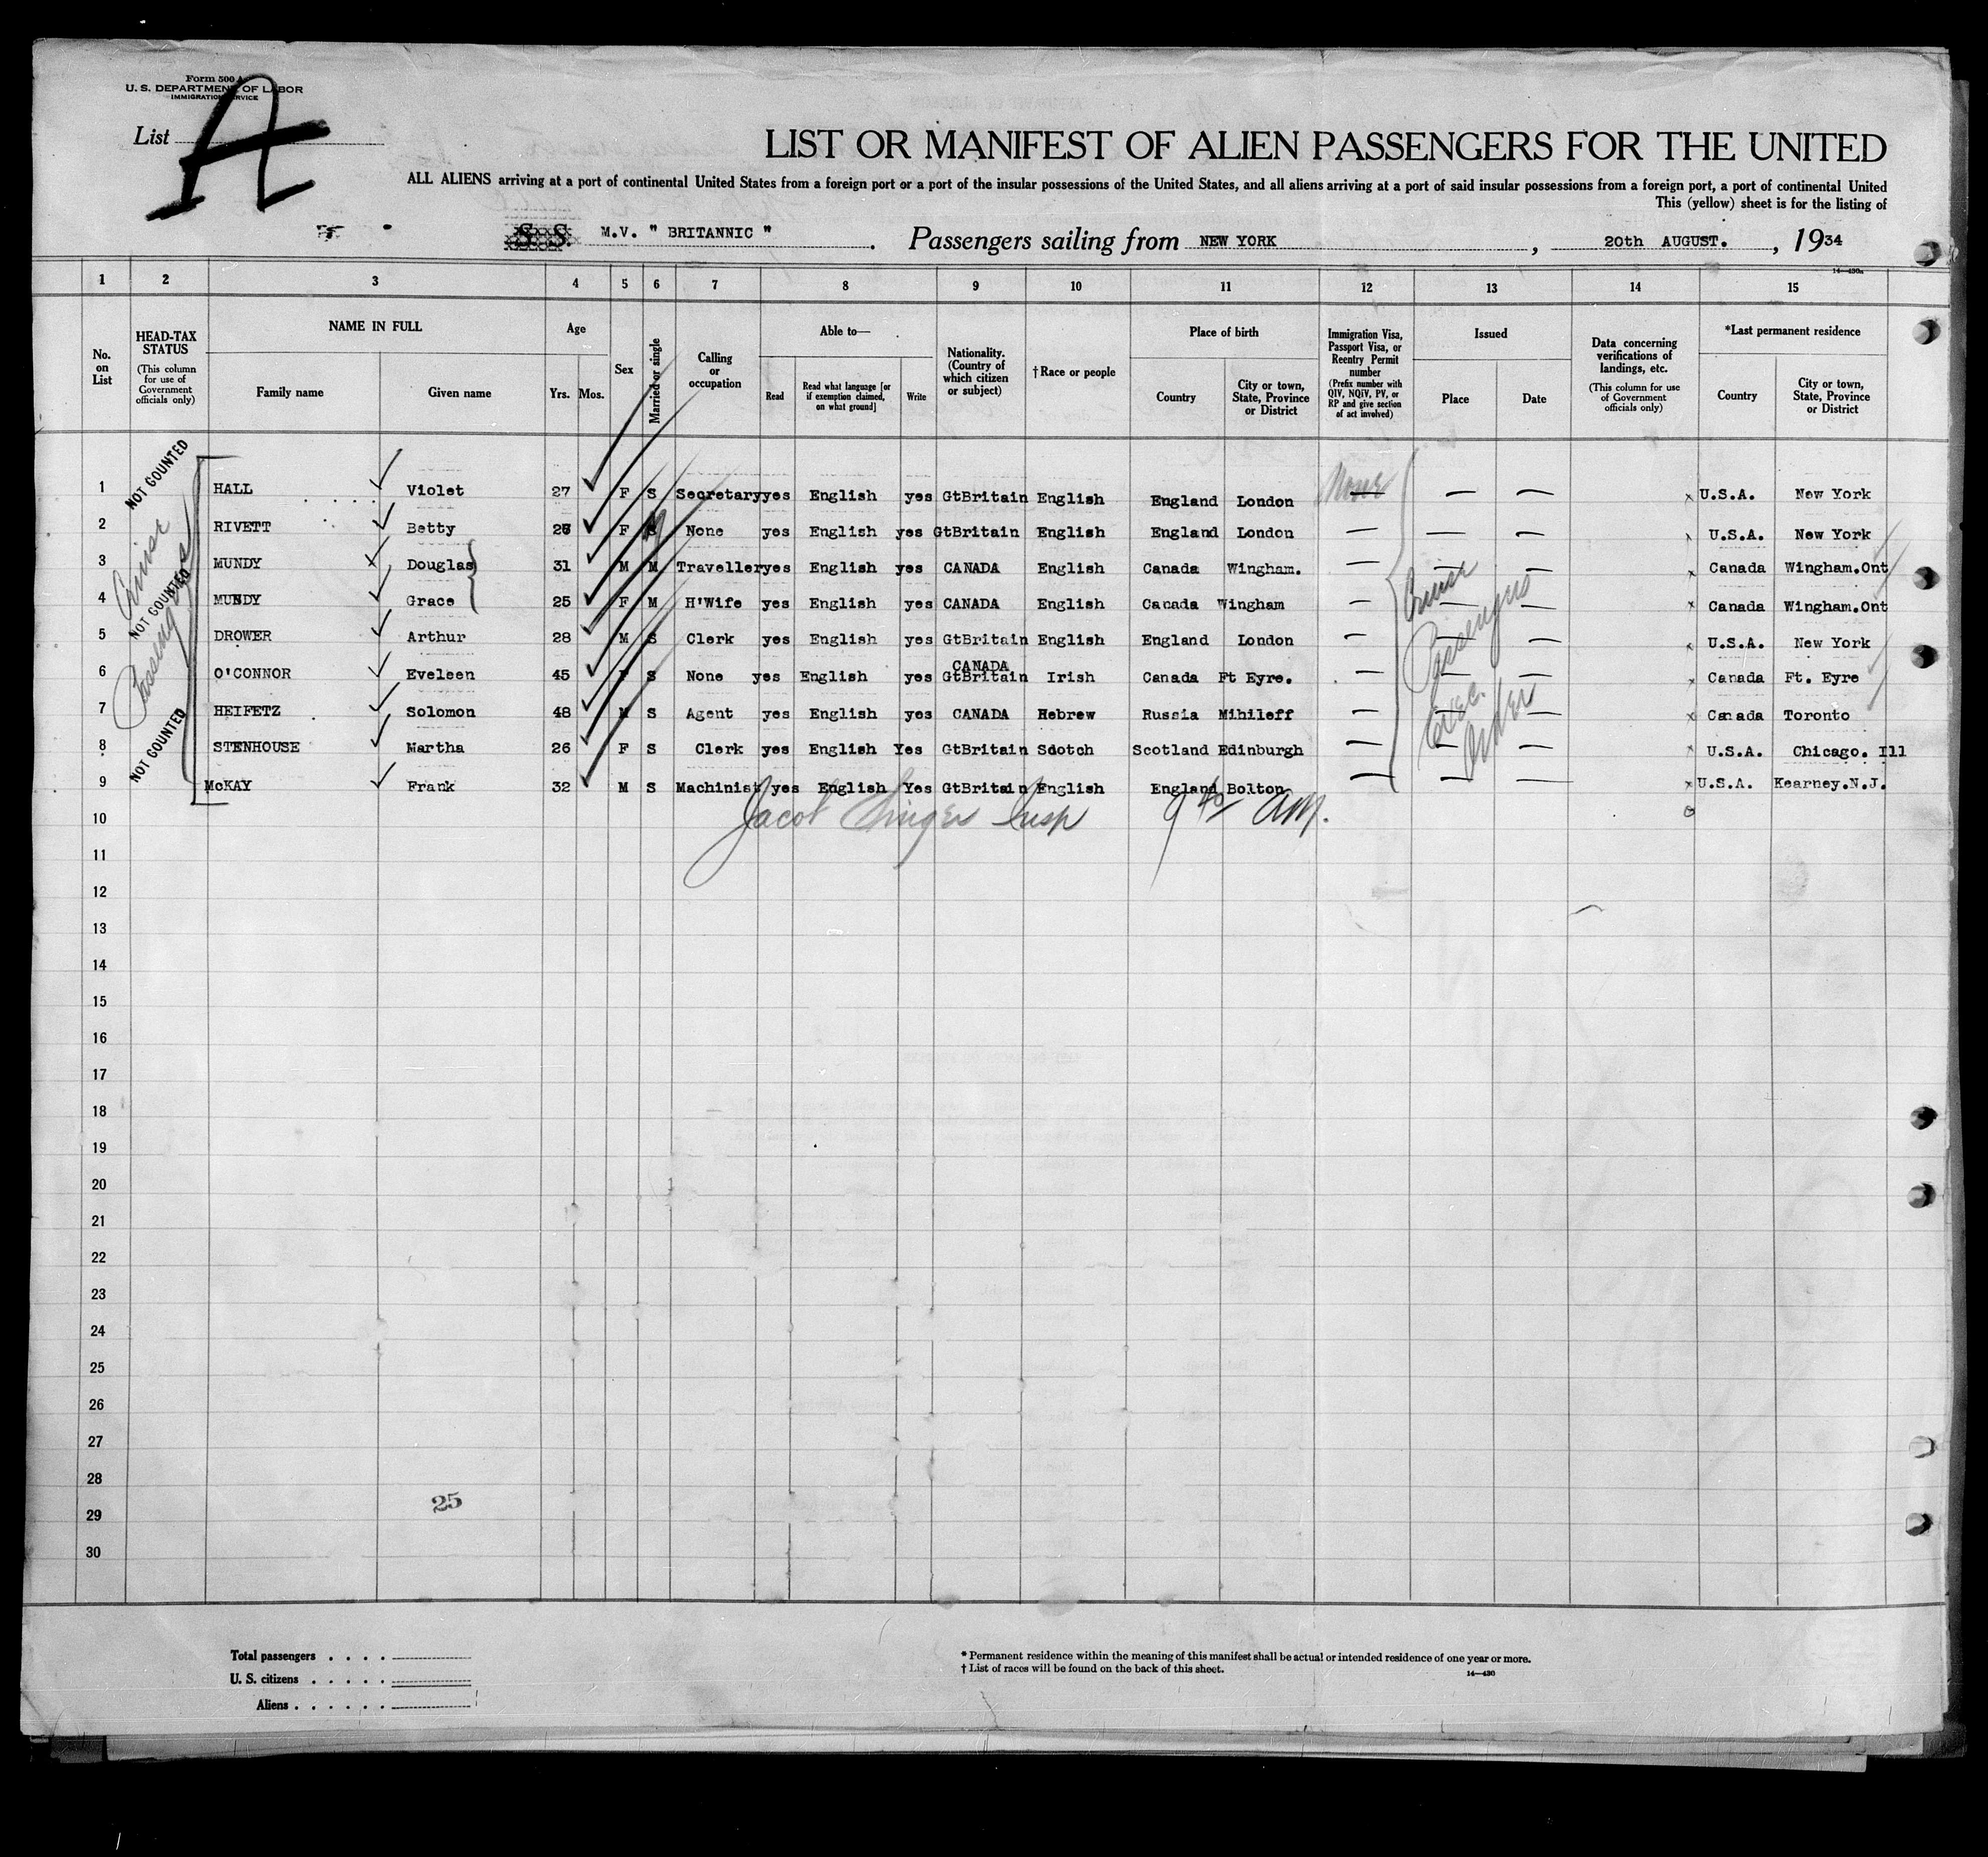 Form 500 A
U. S. DEPARTMENT OF LABOR
IMMIGRATION SERVICE
List A
LIST OR MANIFEST OF ALIEN PASSENGERS FOR THE UNITED
ALL ALIENS arriving at a port of continental United States from a foreign port or a port of the insular possessions of the United States, and all aliens arriving at a port of said insular possessions from a foreign port, a port of continental United
This (yellow) sheet is for the listing of
S. S. M.V. " BRITANNIC " . Passengers sailing from NEW YORK , 20th AUGUST. , 1934
14—430a
1 2 3 4 5 6 7 8 9 10 11 12 13 14 15
No. on List
HEAD-TAX STATUS (This column for use of Government officials only)
NAME IN FULL
Family name Given name
Age
Yrs. Mos.
Sex
Married or single
Calling or occupation
Able to—
Read Read what language [or if exemption claimed, on what ground] Write
Nationality. (Country of which citizen or subject)
†Race or people
Place of birth
Country City or town, State, Province or District
Immigration Visa, Passport Visa, or Reentry Permit number (Prefix number with QIV, NQIV, PV, or RP and give section of act involved)
Issued
Place Date
Data concerning verifications of landings, etc. (This column for use of Government officials only)
*Last permanent residence
Country City or town, State, Province or District
NOT COUNTED
NOT COUNTED
NOT COUNTED
Cruise Passengers
1 HALL Violet 27 F S Secretary yes English yes GtBritain English England London None — — — x U.S.A. New York
2 RIVETT Betty F S M None yes English yes GtBritain English England London — — — x U.S.A. New York
3 MUNDY Douglas 31 M M Traveller yes English yes CANADA English Canada Wingham. — — — x Canada Wingham.Ont
4 MUNDY Grace 25 F M H'Wife yes English yes CANADA English Canada Wingham — — — x Canada Wingham.Ont
5 DROWER Arthur 28 M S Clerk yes English yes GtBritain English England London — — — x U.S.A. New York
6 O'CONNOR Eveleen 45 F S None yes English yes CANADA GtBritain Irish Canada Ft Eyre. — — — x Canada Ft. Eyre
7 HEIFETZ Solomon 48 M S Agent yes English yes CANADA Hebrew Russia Mihileff — — — x Canada Toronto
8 STENHOUSE Martha 26 F S Clerk yes English Yes GtBritain Scotch Scotland Edinburgh — — — x U.S.A. Chicago. Ill
9 McKAY Frank 32 M S Machinist yes English Yes GtBritain English England Bolton — — — x U.S.A. Kearney.N.J.
Cruise Passengers Exec. Order
Jacob Singer Insp 9 40 AM.
10
11
12
13
14
15
16
17
18
19
20
21
22
23
24
25
26
27
28
25
29
30
Total passengers . . . .
U. S. citizens . . . . .
Aliens . . . . . .
* Permanent residence within the meaning of this manifest shall be actual or intended residence of one year or more.
† List of races will be found on the back of this sheet.
14—430